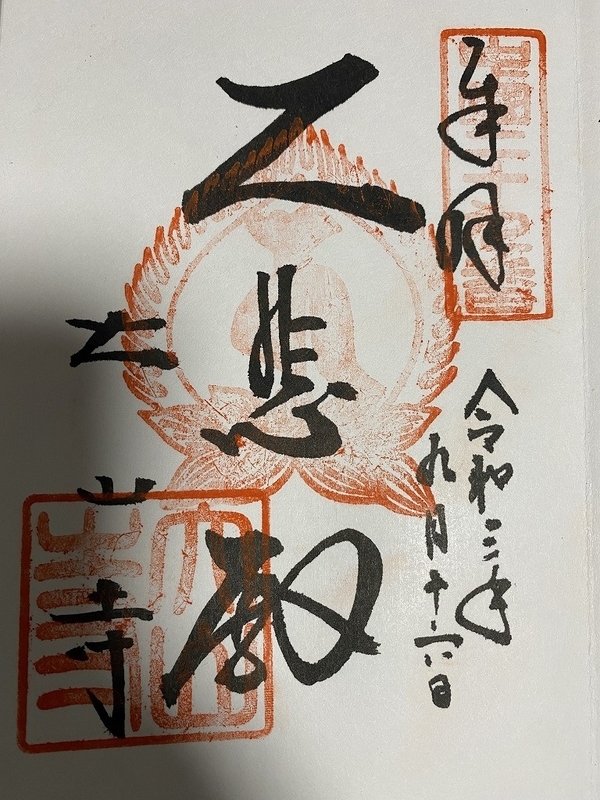 奉拝
令和三年
九月十六日
大悲殿
大山寺